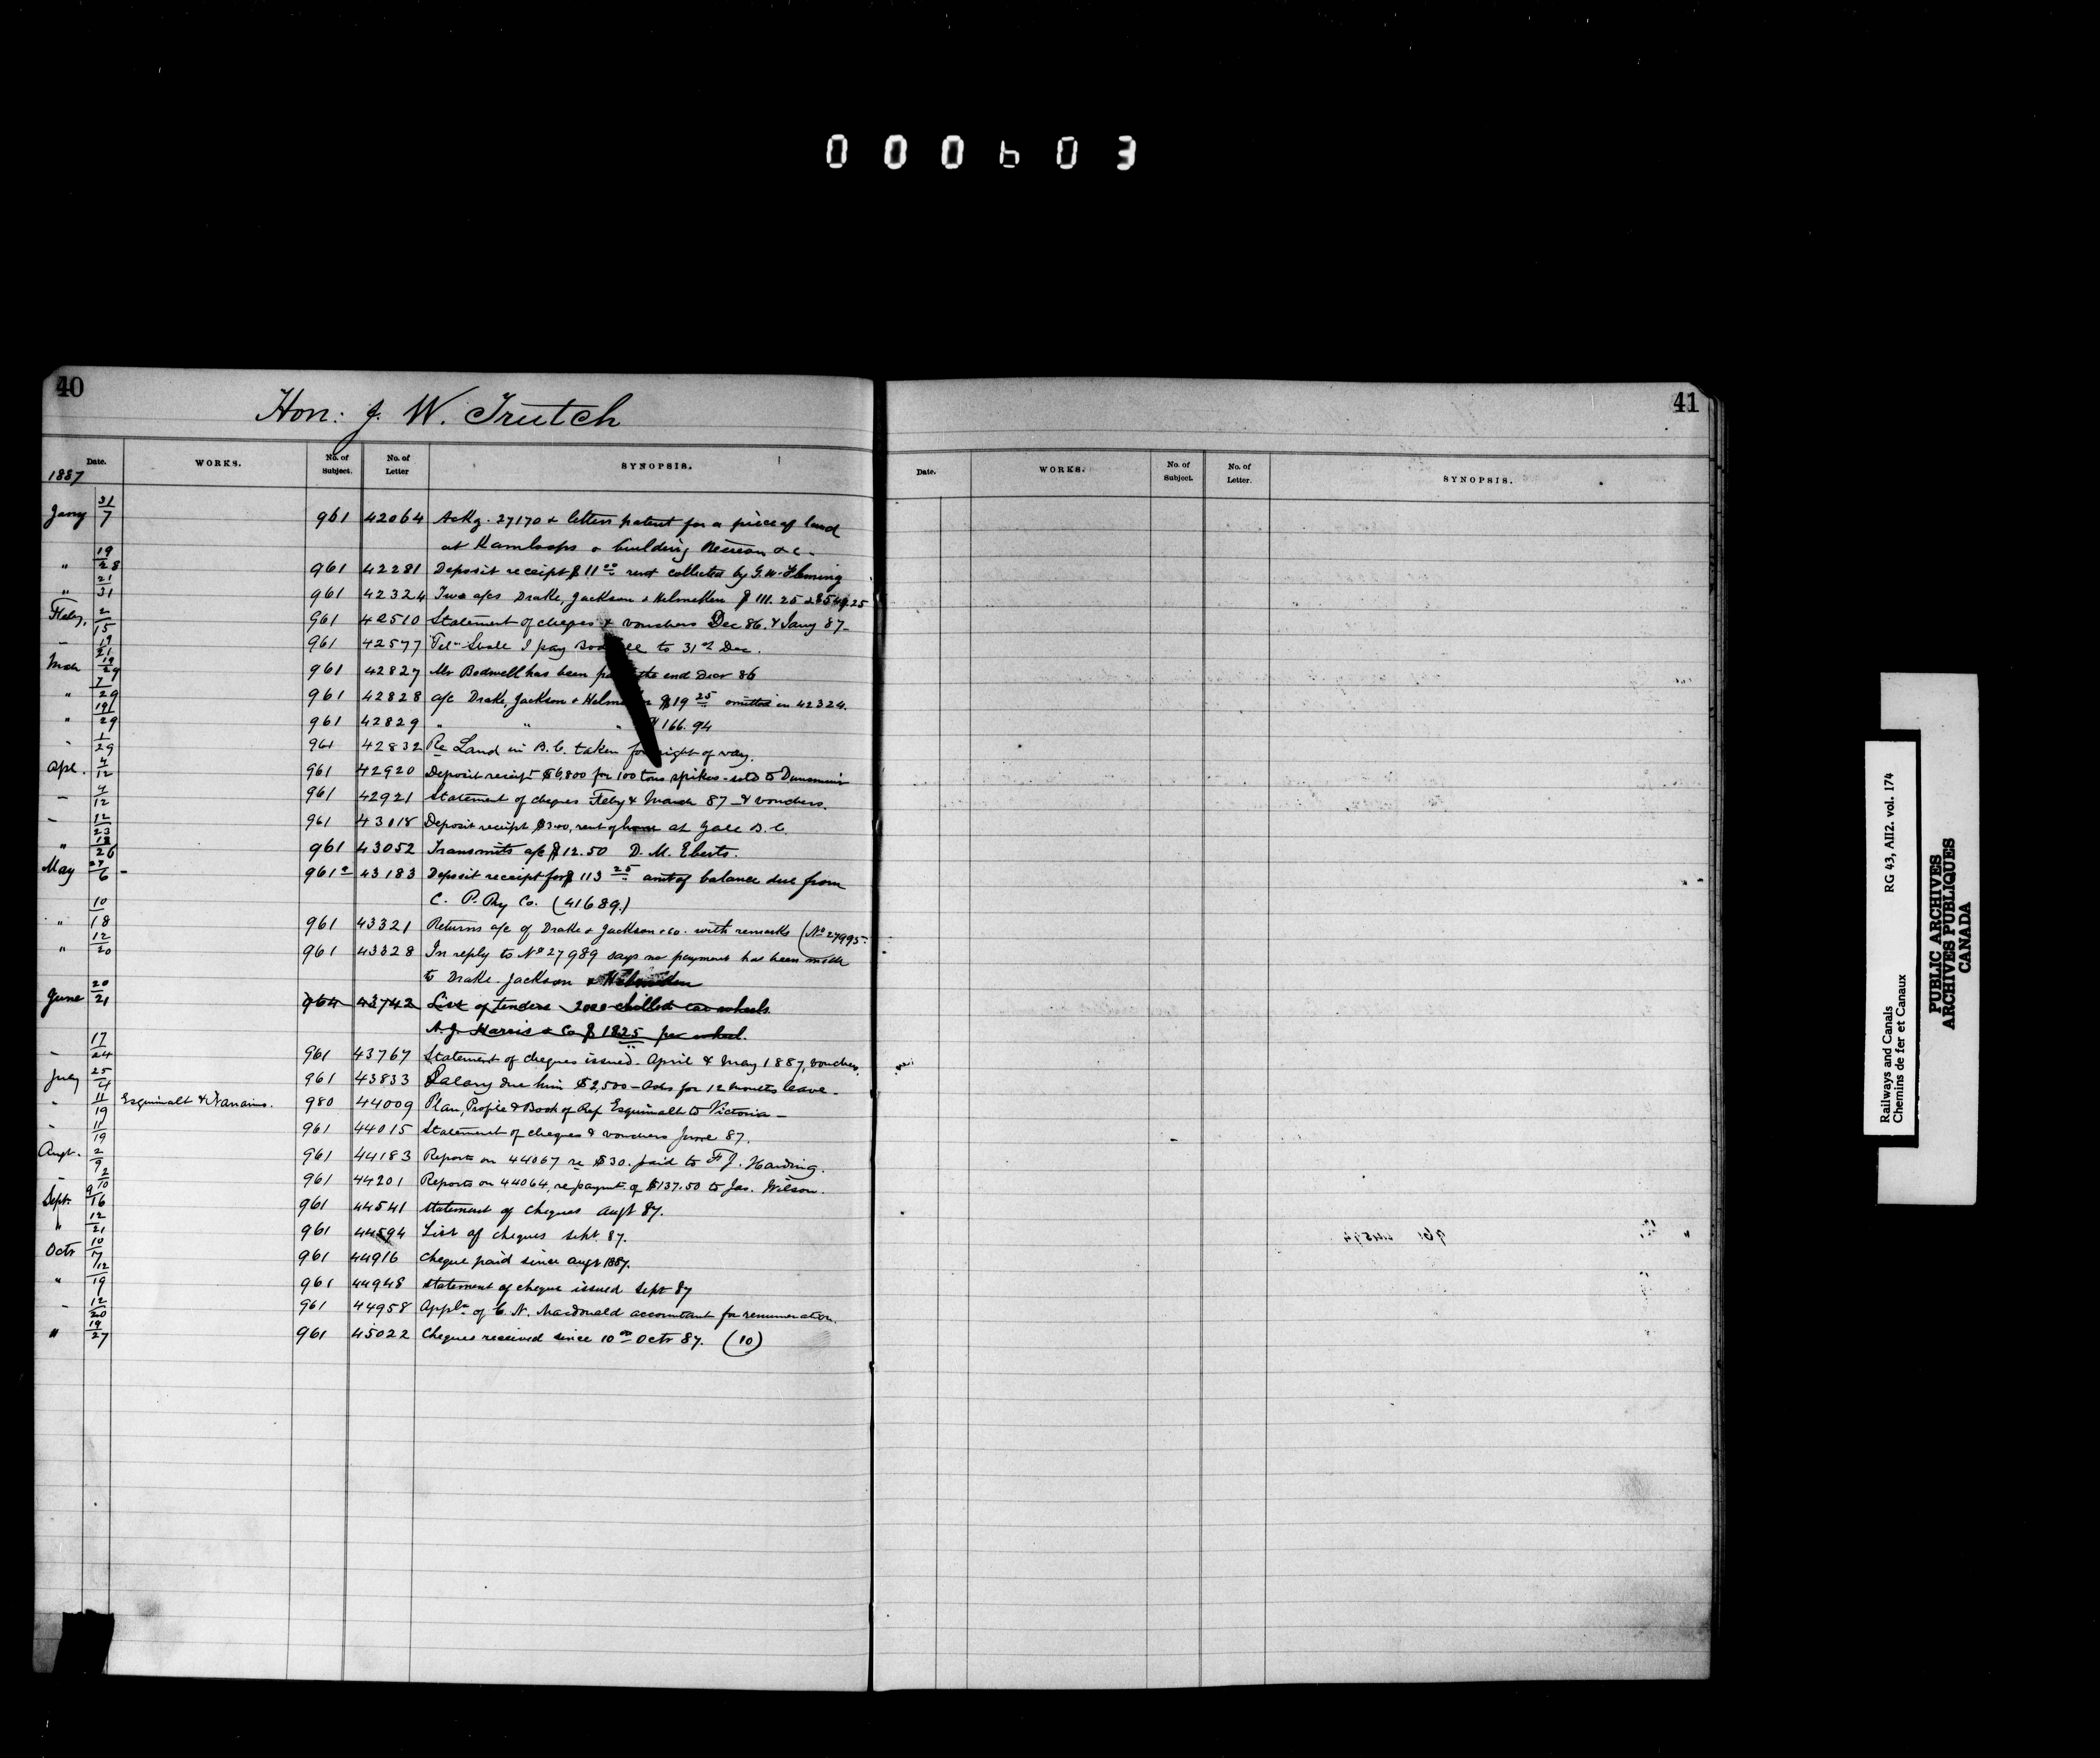 000603
40
Hon: J. W. Trutch
Date. WORKS. No. of Subject. No. of Letter SYNOPSIS.
1887
Jany 31/7 961 42064 Ackg. 27170 & letters patent for a piece of land
at Kamloops & building thereon &c.
" 19/28 961 42281 Deposit receipt $11 00 rent collected by G. W. Fleming
" 21/31 961 42324 Two a/cs Drake, Jackson & Helmcken $111.25
Feby. 2/15 961 42510 Statement of cheques & vouchers Dec 86. & Jany 87-
961 42577 Tel- Shall I pay to 31st Dec.
Mch 961 42827 Mr Bodwell has been the end Decr 86
" 7/29 961 42828 a/c Drake, Jackson & $19 25 omitted in 42324.
" 19/29 961 42829 " " " 166.94
" 1/29 961 42832 Re Land in B.C. taken for right of way.
Apl. 4/12 961 42920 Deposit receipt $6,800 for 100 tons spikes - sold to Dunsmuir
- 4/12 961 42921 Statement of cheques Feby & March 87 - & vouchers.
- 12/23 961 43018 Deposit receipt $3.00, rent of house at Yale B.C.
" 18/26 961 43052 Transmits a/c $12.50 D. M. Eberts.
May 27/6 - 961 43183 Deposit receipt for $113 25 amt of balance due from
C. P. Ry Co. (41689.)
" 10/18 961 43321 Returns a/c of Drake & Jackson & Co. with remarks (No 27995-
" 12/20 961 43328 In reply to No 27989 says no payment has been made
to Drake. Jackson & Helmcken
June 20/21 964 43742 List of tenders 2000 chilled car wheels.
A. J. Harris & Co $ 1825 per wheel.
- 17/24 961 43767 Statement of cheques issued. April & May 1887, vouchers.
July 25/4 961 43833 Salary due him $2,500 - Asks for 12 months leave -
" 11/19 Esquimalt & Nanaimo. 980 44009 Plan, Profile & Book of Ref Esquimalt to Victoria -
- 11/19 961 44015 Statement of cheques & vouchers June 87.
Augt. 2/9 961 44183 Reports on 44067 re $30. paid to F. J. Harding.
- 2/10 961 44201 Reports on 44064, re paymt. of $137.50 to Jas. Wilson.
Septr 9/16 961 44541 Statement of cheques Augt 87.
" 12/21 961 44594 List of cheques Sept. 87.
Octr 10/17 961 44916 Cheque paid since Augt 1887.
" 12/19 961 44948 Statement of cheque issued Sept 87
- 12/20 961 44958 Appln of C. N. Macdonald accountant for remuneration.
" 19/27 961 45022 Cheques received since 10th Octr 87. (10)
41
Date. WORKS. No. of Subject. No. of Letter. SYNOPSIS.
Railways and Canals RG 43, AII2. vol. 174
Chemins de fer et Canaux
PUBLIC ARCHIVES
ARCHIVES PUBLIQUES
CANADA